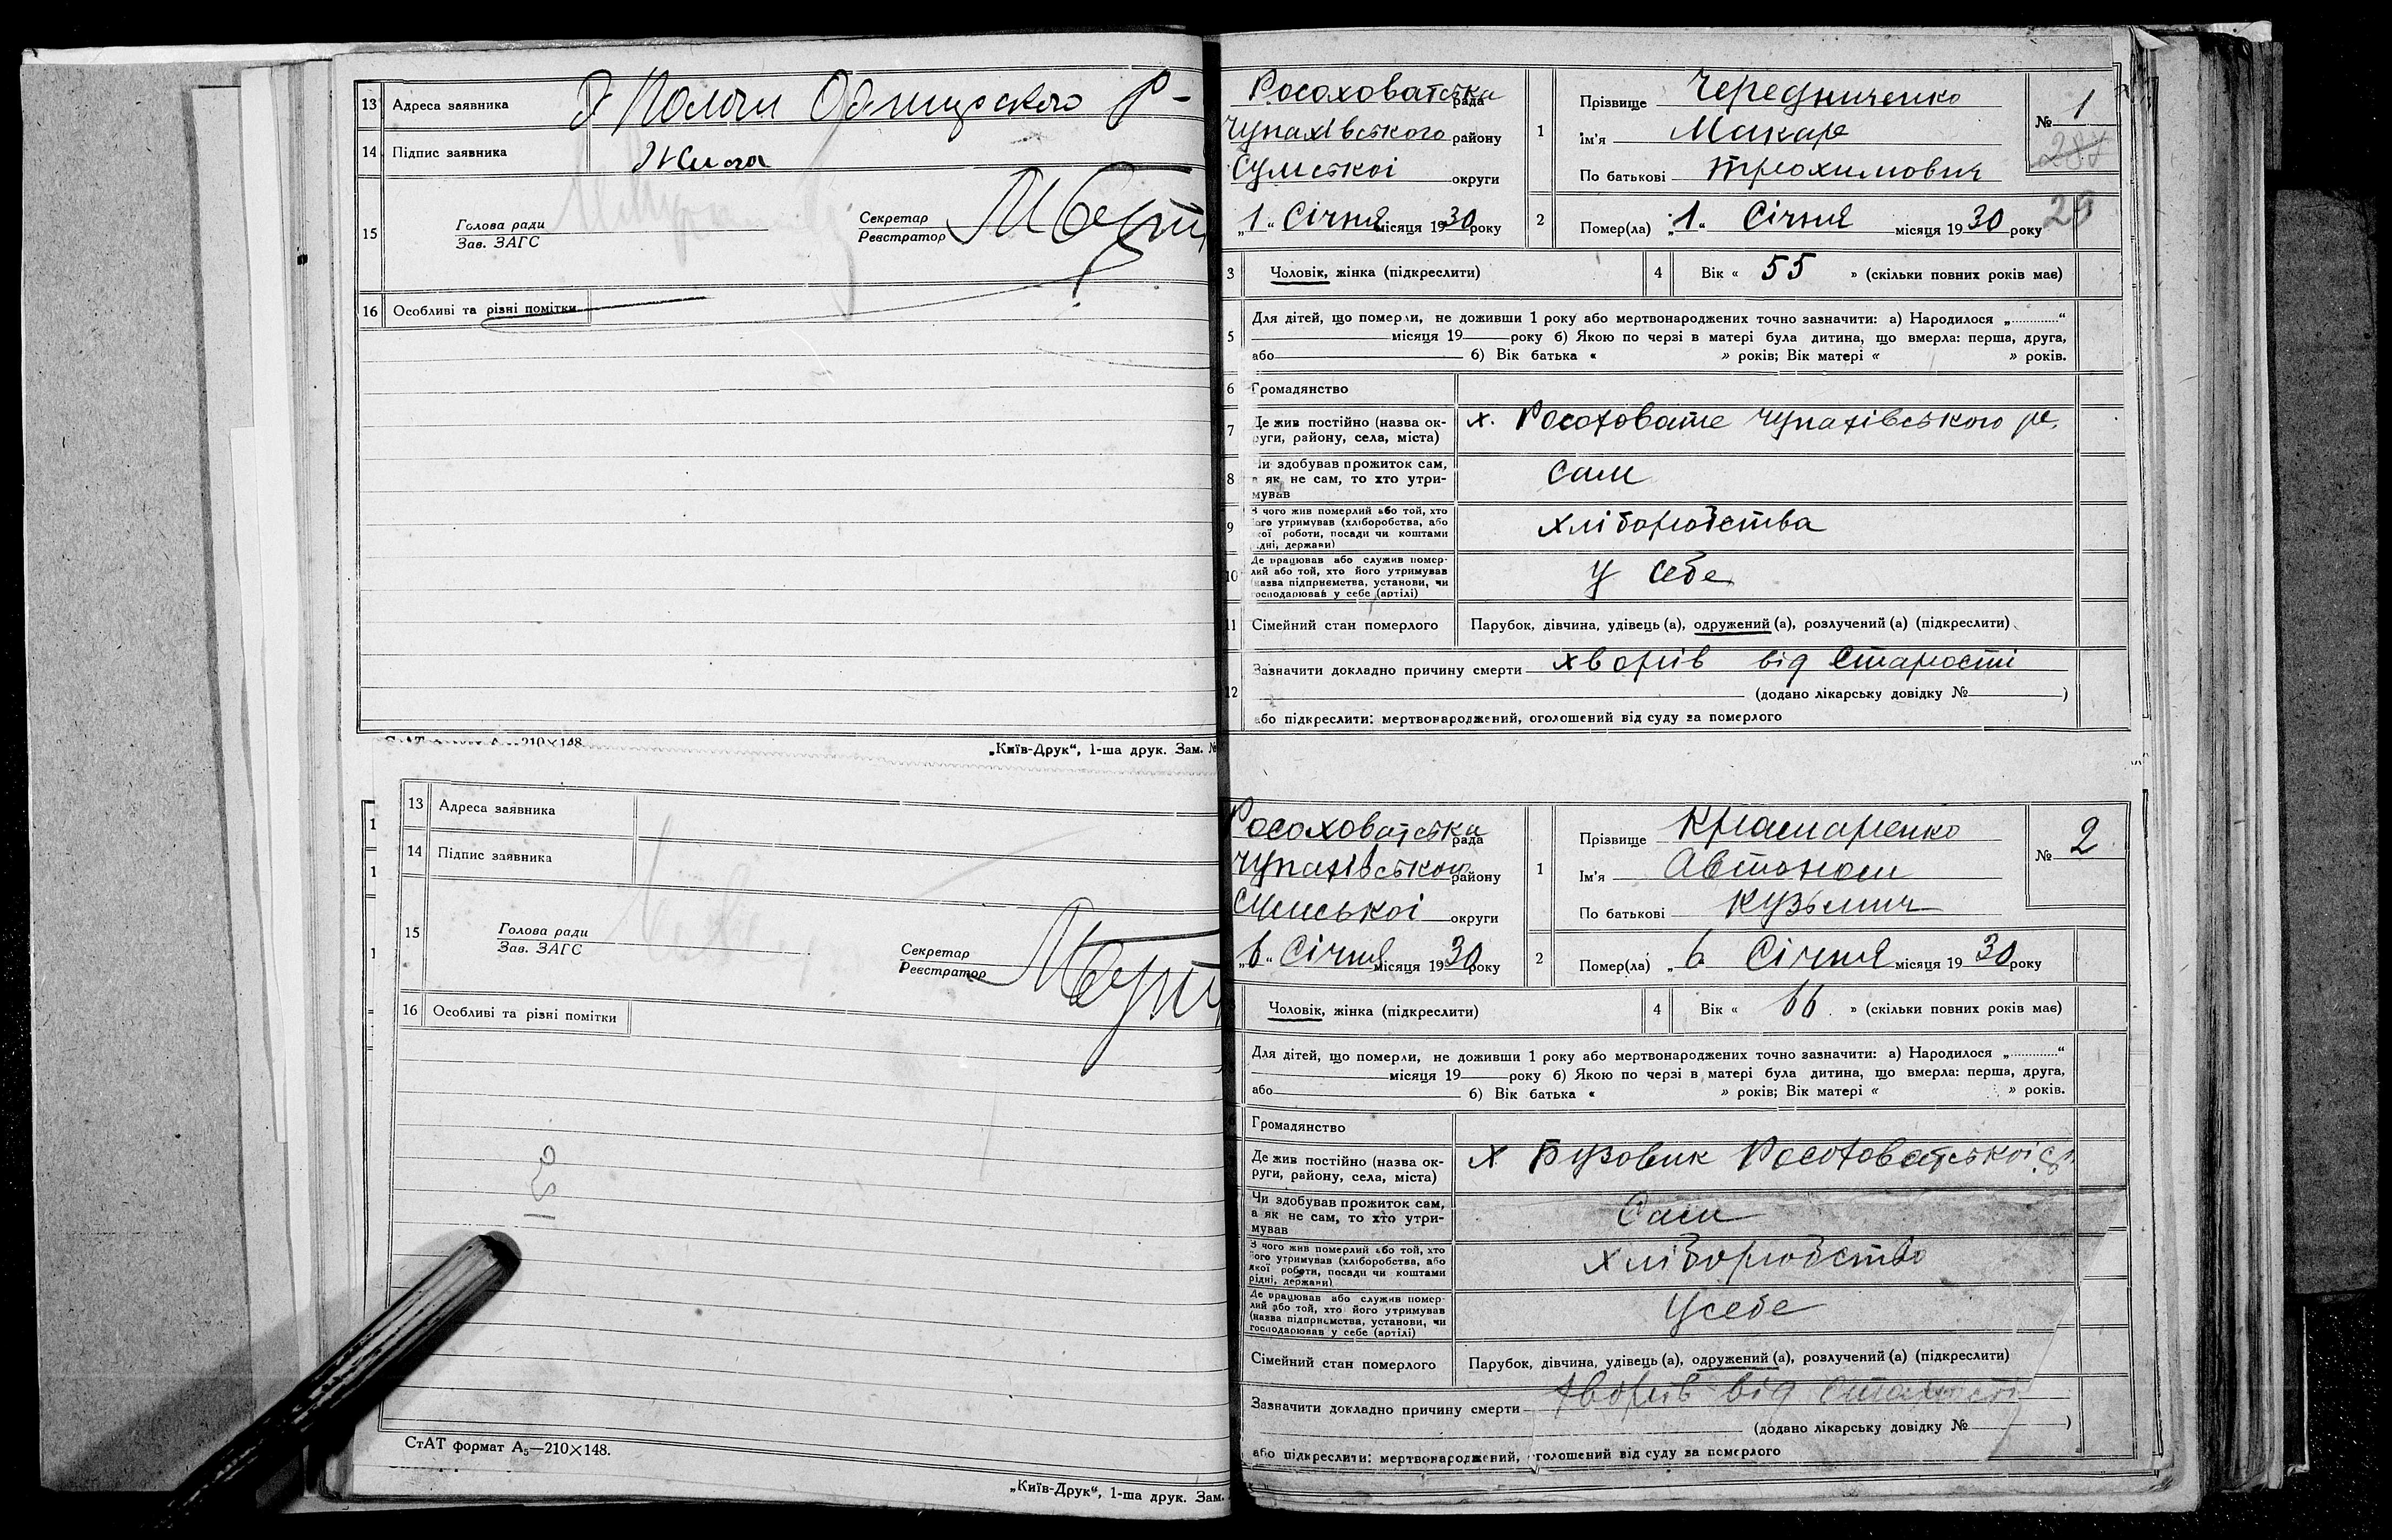 13 Адреса заявника
14 Підпис заявника
15 Голова ради Секретар
Зав. ЗАГС Реєстратор
16 Особливі та різні помітки
„Київ-Друк“, 1-ша друк. Зам. №
13 Адреса заявника
14 Підпис заявника
15 Голова ради Секретар
Зав. ЗАГС Реєстратор
16 Особливі та різні помітки
СтАТ формат А5—210×148.
„Київ-Друк“, 1-ша друк. Зам.
Росоховатська рада
Чупахівського району
Сумської округи
„1“ Січня місяця 1930 року
1 Прізвище Чередниченко
Ім'я Макар
По батькові Трохимович
№ 1
287
29
2 Помер(ла) „1“ Січня місяця 1930 року
3 Чоловік, жінка (підкреслити) 4 Вік « 55 » (скільки повних років має)
5 Для дітей, що померли, не доживши 1 року або мертвонароджених точно зазначити: а) Народилося „ “
місяця 19 року б) Якою по черзі в матері була дитина, що вмерла: перша, друга,
або б) Вік батька « » років; Вік матері « » років.
6 Громадянство
7 Де жив постійно (назва ок-
руги, району, села, міста) х. Росоховате Чупахівського р.
8 Чи здобував прожиток сам,
а як не сам, то хто утри-
мував Сам
9 З чого жив померлий або той, хто
його утримував (хліборобства, або
якої роботи, посади чи коштами
рідні, держави) хліборобства
10 Де працював або служив помер-
лий або той, хто його утримував
(назва підприємства, установи, чи
господарював у себе (артілі) у себе
11 Сімейний стан померлого Парубок, дівчина, удівець (а), одружений (а), розлучений (а) (підкреслити)
12 Зазначити докладно причину смерти хворів від Старості
(додано лікарську довідку № )
або підкреслити: мертвонароджений, оголошений від суду за померлого
Росоховатська рада
Чупахівського району
Сумської округи
„6“ Січня місяця 1930 року
1 Прізвище Крамаренко
Ім'я Автоном
По батькові Кузьмич
№ 2
2 Помер(ла) „6 Січня місяця 1930 року
Чоловік, жінка (підкреслити) 4 Вік « 66 » (скільки повних років має)
Для дітей, що померли, не доживши 1 року або мертвонароджених точно зазначити: а) Народилося „ “
місяця 19 року б) Якою по черзі в матері була дитина, що вмерла: перша, друга,
або б) Вік батька « » років; Вік матері « » років.
Громадянство
Де жив постійно (назва ок-
руги, району, села, міста) х Бузовик Росоховатської
Чи здобував прожиток сам,
а як не сам, то хто утри-
мував Сам
З чого жив померлий або той, хто
його утримував (хліборобства, або
якої роботи, посади чи коштами
рідні, держави) хліборобство
Де працював або служив помер-
лий або той, хто його утримував
(назва підприємства, установи, чи
господарював у себе (артілі) Усебе
Сімейний стан померлого Парубок, дівчина, удівець (а), одружений (а), розлучений (а) (підкреслити)
Зазначити докладно причину смерти хворів від Старості
(додано лікарську довідку № )
або підкреслити: мертвонароджений, оголошений від суду за померлого